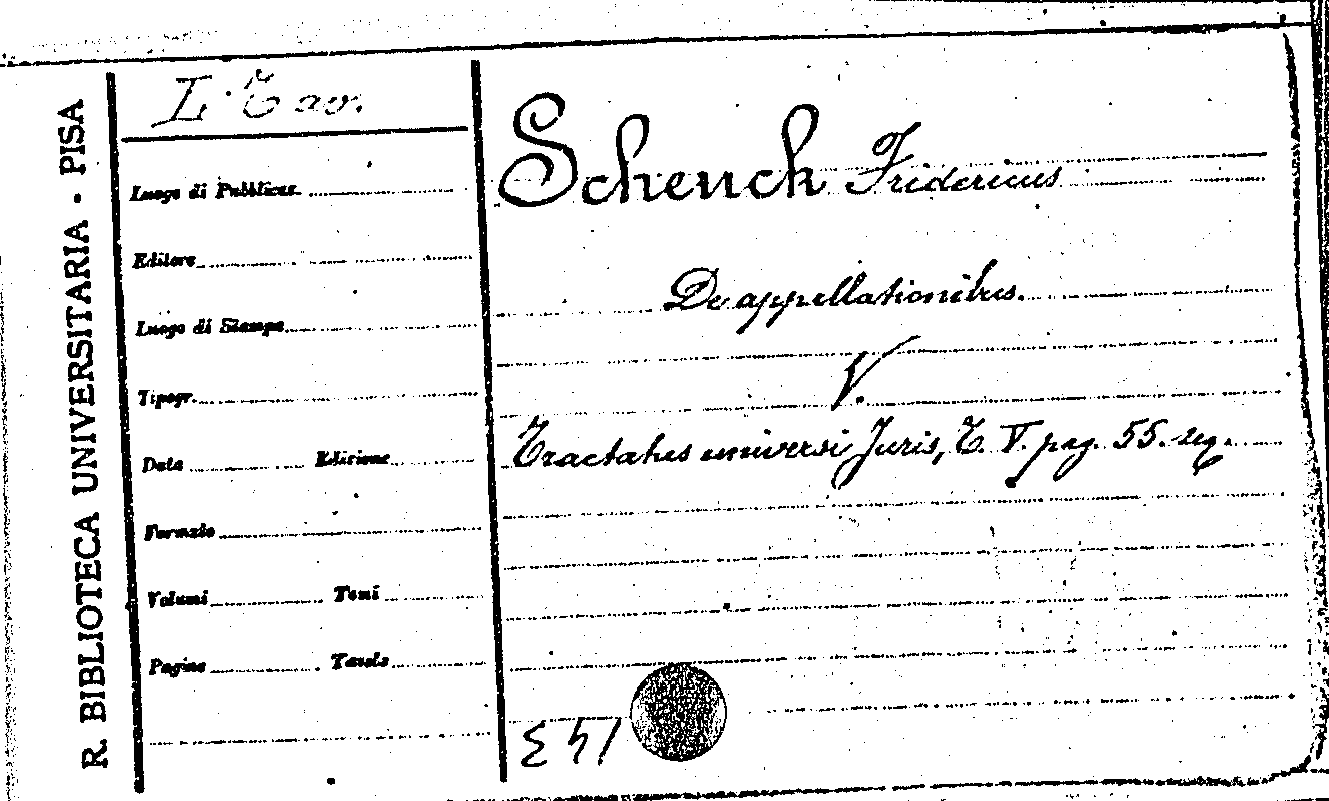 R. BIBLIOTECA UNIVERSITARIA - PISA
L. T av.
Luogo di Pubblicaz.
Editore
Luogo di Stampa
Tipogr.
Data Edizione
Formato
Volumi Tomi
Pagine Tavole
Schenck Fridericus
De appellationibus.
V.
Tractatus universi Juris, T. V. pag. 55. seq.